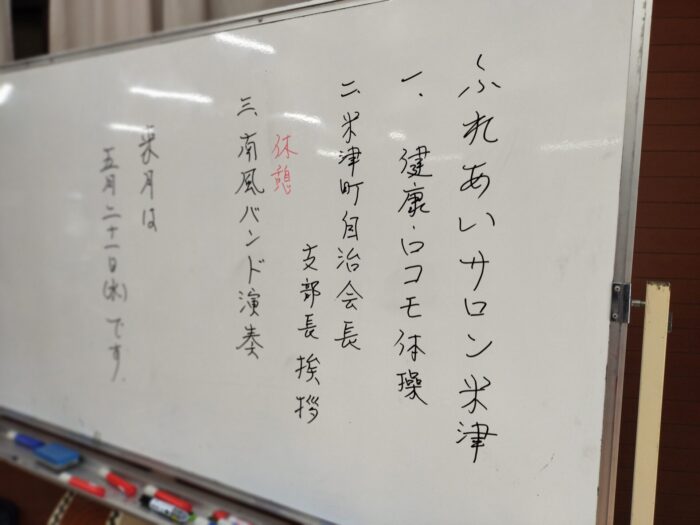 ふれあいサロン米津
一、健康・ロコモ体操
二、米津町自治会長
支部長挨拶
休憩
三、南風バンド演奏
来月は
五月二十一日(水)です.